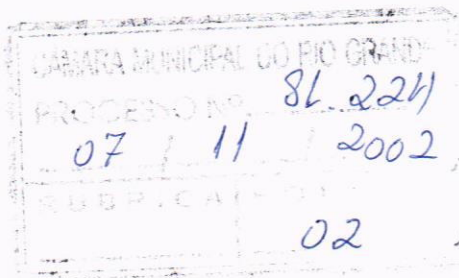 CÂMARA MUNICIPAL DO RIO GRANDE
PROCESSO Nº
07 / 11 / 2002
RUBRICA
02